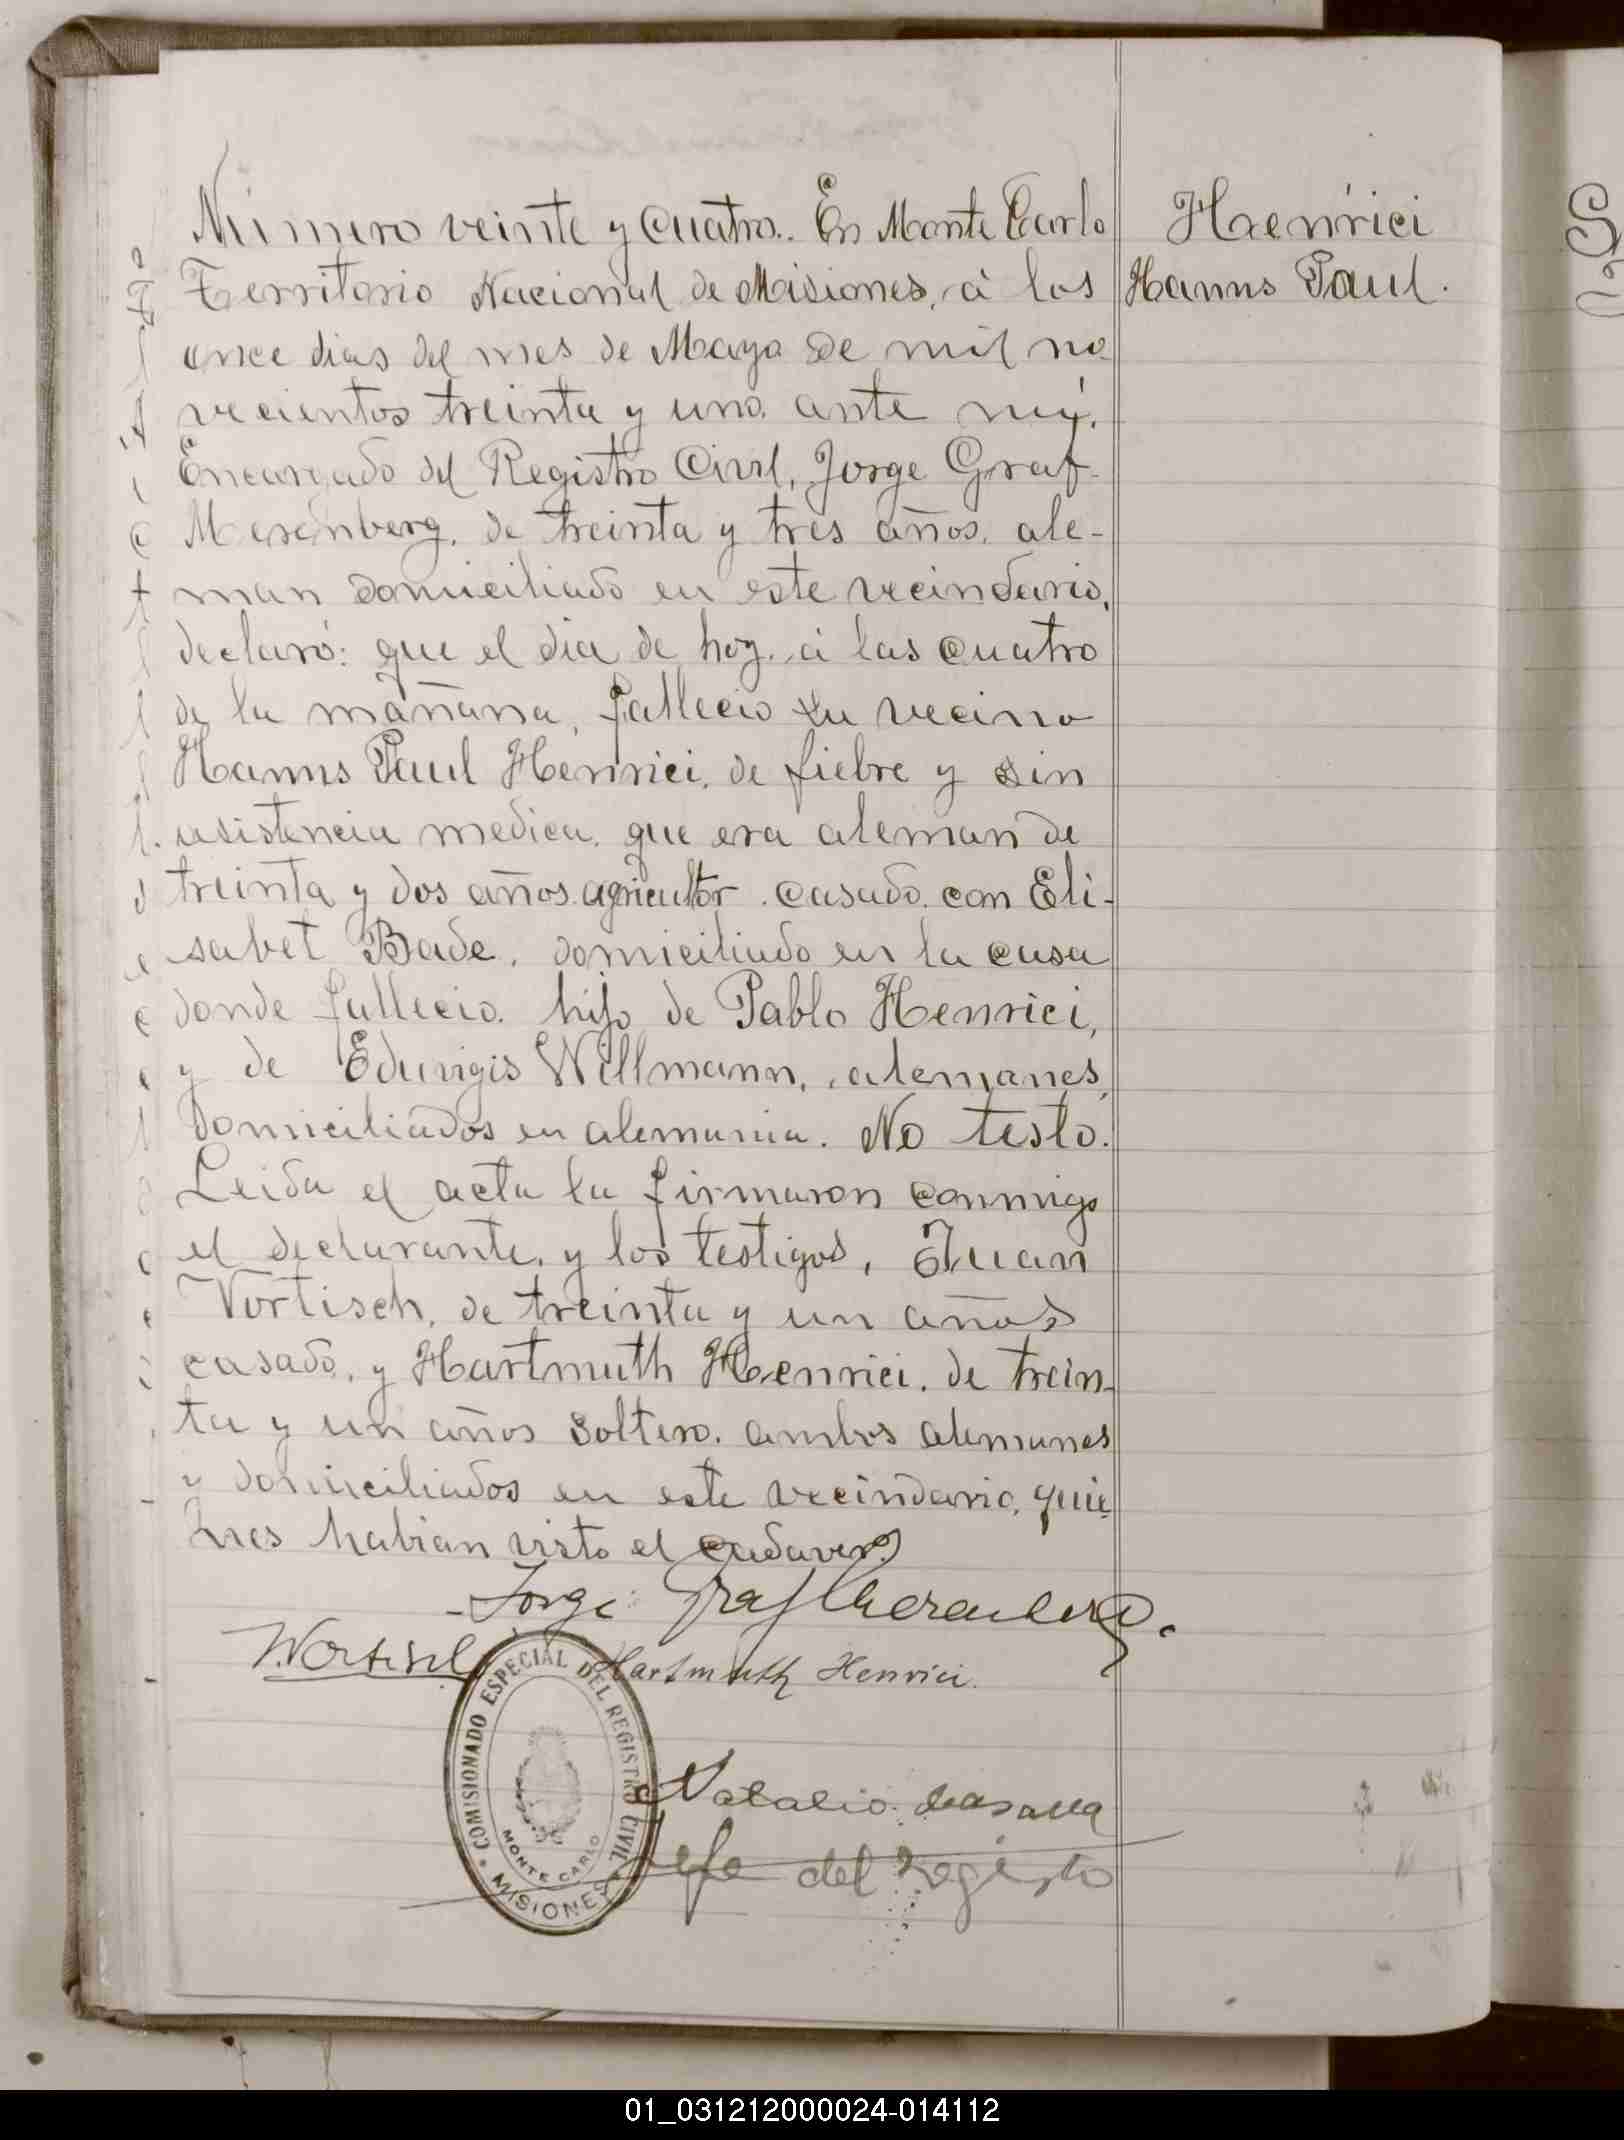 Número veinte y cuatro. En Monte Carlo
Territorio Nacional de Misiones, á los
once dias del mes de Mayo de mil no
vecientos treinta y uno. ante mí.
Encargado del Registro Civil, Jorge Graf-
Merenberg, de treinta y tres años, ale-
man domiciliado en este vecindario,
declaró: que el dia de hoy, á las cuatro
de la mañana, fallecio su vecino
Hanns Paul Henrici, de fiebre y sin
asistencia medica, que era aleman de
treinta y dos años. agricultor. casado. con Eli-
sabet Bade, domiciliado en la casa
donde fallecio. hijo de Pablo Henrici,
y de Eduvigis Willmann, alemanes,
domiciliados en alemania. No testó.
Leida el acta la firmaron conmigo
el declarante, y los testigos, Juan
Vortisch, de treinta y un años
casado, y Hartmuth Henrici, de trein-
ta y un años soltero, ambos alemanes
y domiciliados en este vecindario, quie
nes habian visto el cadaver.
Jorge Graf Merenberg.
Hartmuth Henrici.
Natalio
Jefe del Registro
COMISIONADO ESPECIAL DEL REGISTRO CIVIL
MONTE CARLO
MISIONES
Henrici
Hanns Paul.
01_031212000024-014112